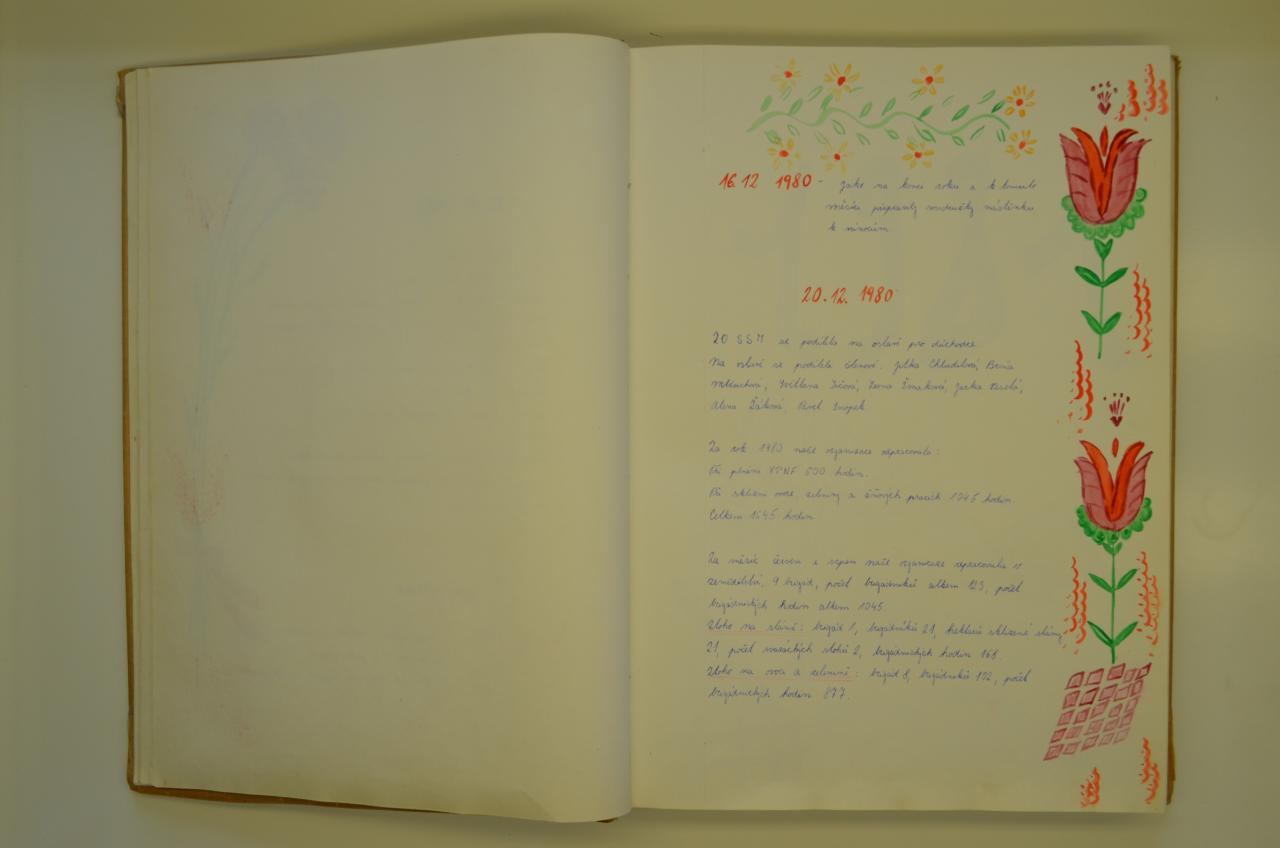 16.12 1980 - Jako na konci roku a k tomuto
měsíci připravily soudružky nástěnku
k vánocům.
20.12. 1980
ZO SSM se podílela na oslavě pro důchodce.
Na oslavě se podíleli členové: Jitka Chludilová,
Světlana, Ivana, Jarka Veselá,
Alena Žáková, Pavel
Za rok 1980 naše organizace odpracovala:
Při plnění VPNF 600 hodin.
Při sklizni ovoce zeleniny a žňových pracích 1045 hodin.
Celkem 1645 hodin
Za měsíc červen a srpen naše organizace odpracovala v
zemědělství, 9 brigád, počet brigádníků celkem 123, počet
brigádnických hodin celkem 1045.
Z toho na slámě: brigád 1, brigádníků 21, hektarů sklizené slámy
21, počet stohů 2, brigádnických hodin 168.
Z toho na ovoci a zelenině: brigád 8, brigádníků 102, počet
brigádnických hodin 877.